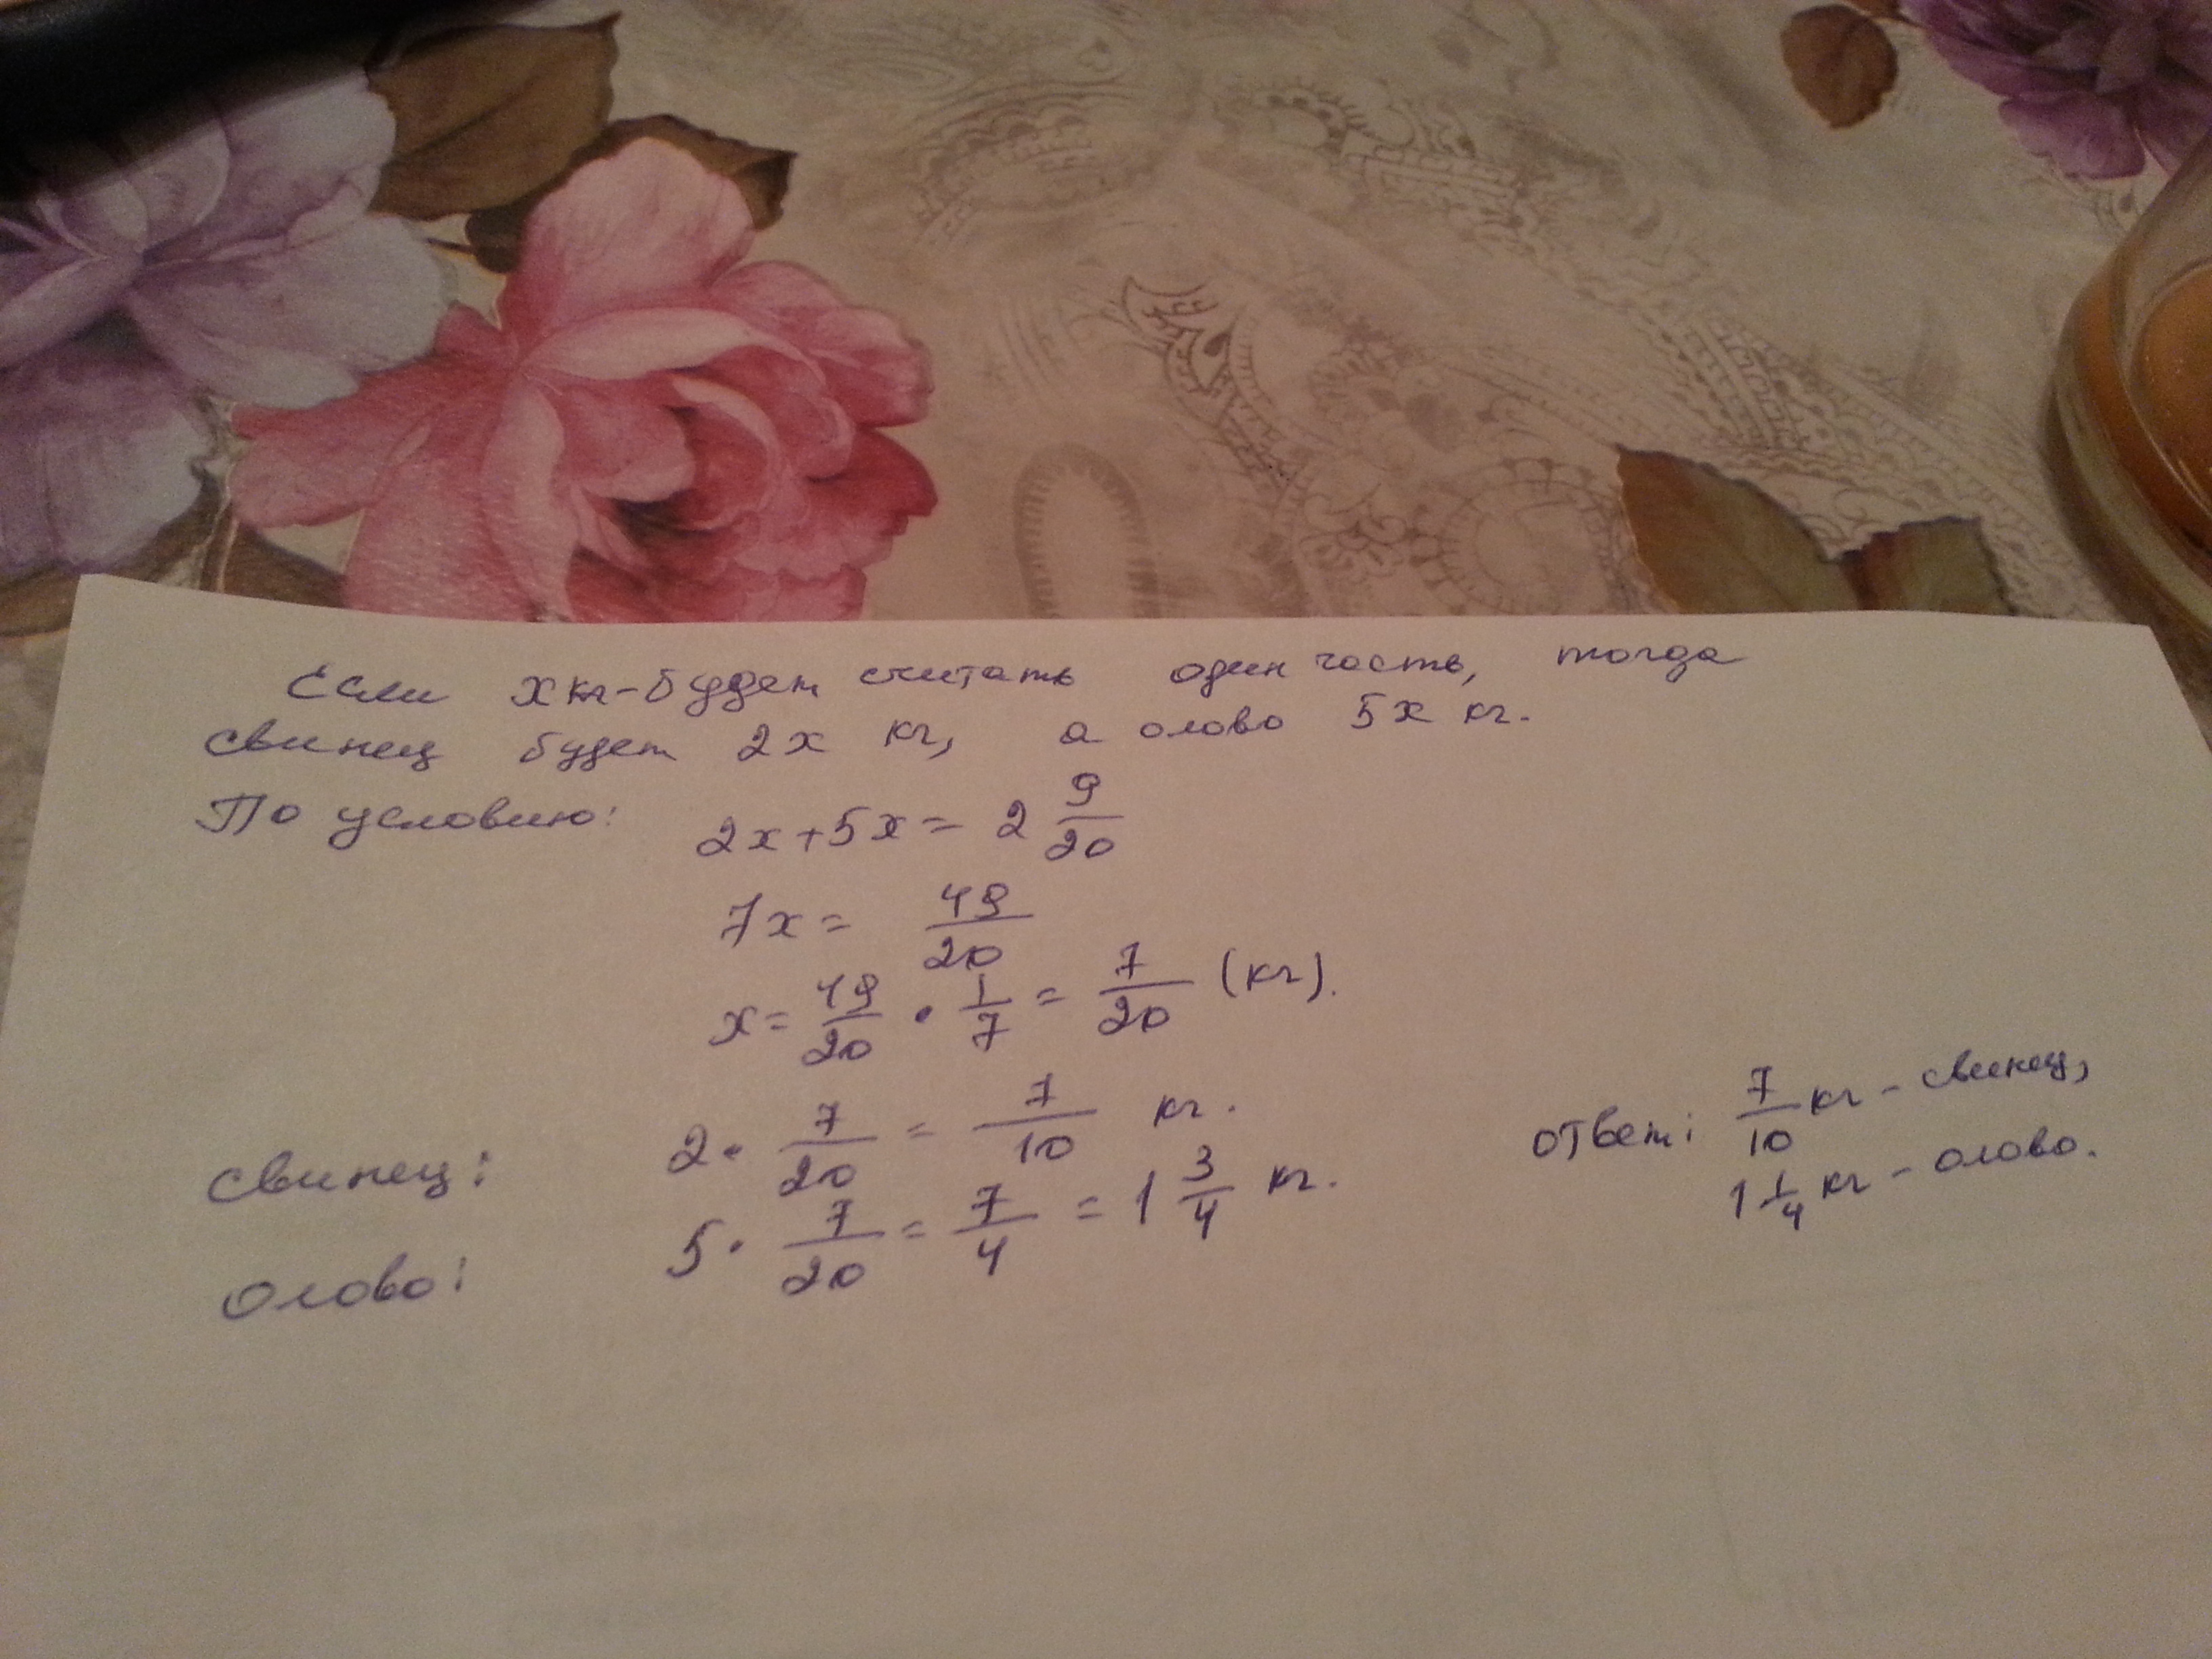 Если x кг - будет считать один часть, тогда
свинец будет 2x кг, а олово 5x кг.
По условию: 2x+5x= 2 9/20
7x= 49/20
x= 49/20 · 1/7 = 7/20 (кг).
Свинец: 2· 7/20 = 7/10 кг.
Олово: 5· 7/20 = 7/4 = 1 3/4 кг.
ответ: 7/10 кг - свинец,
1 1/4 кг - олово.